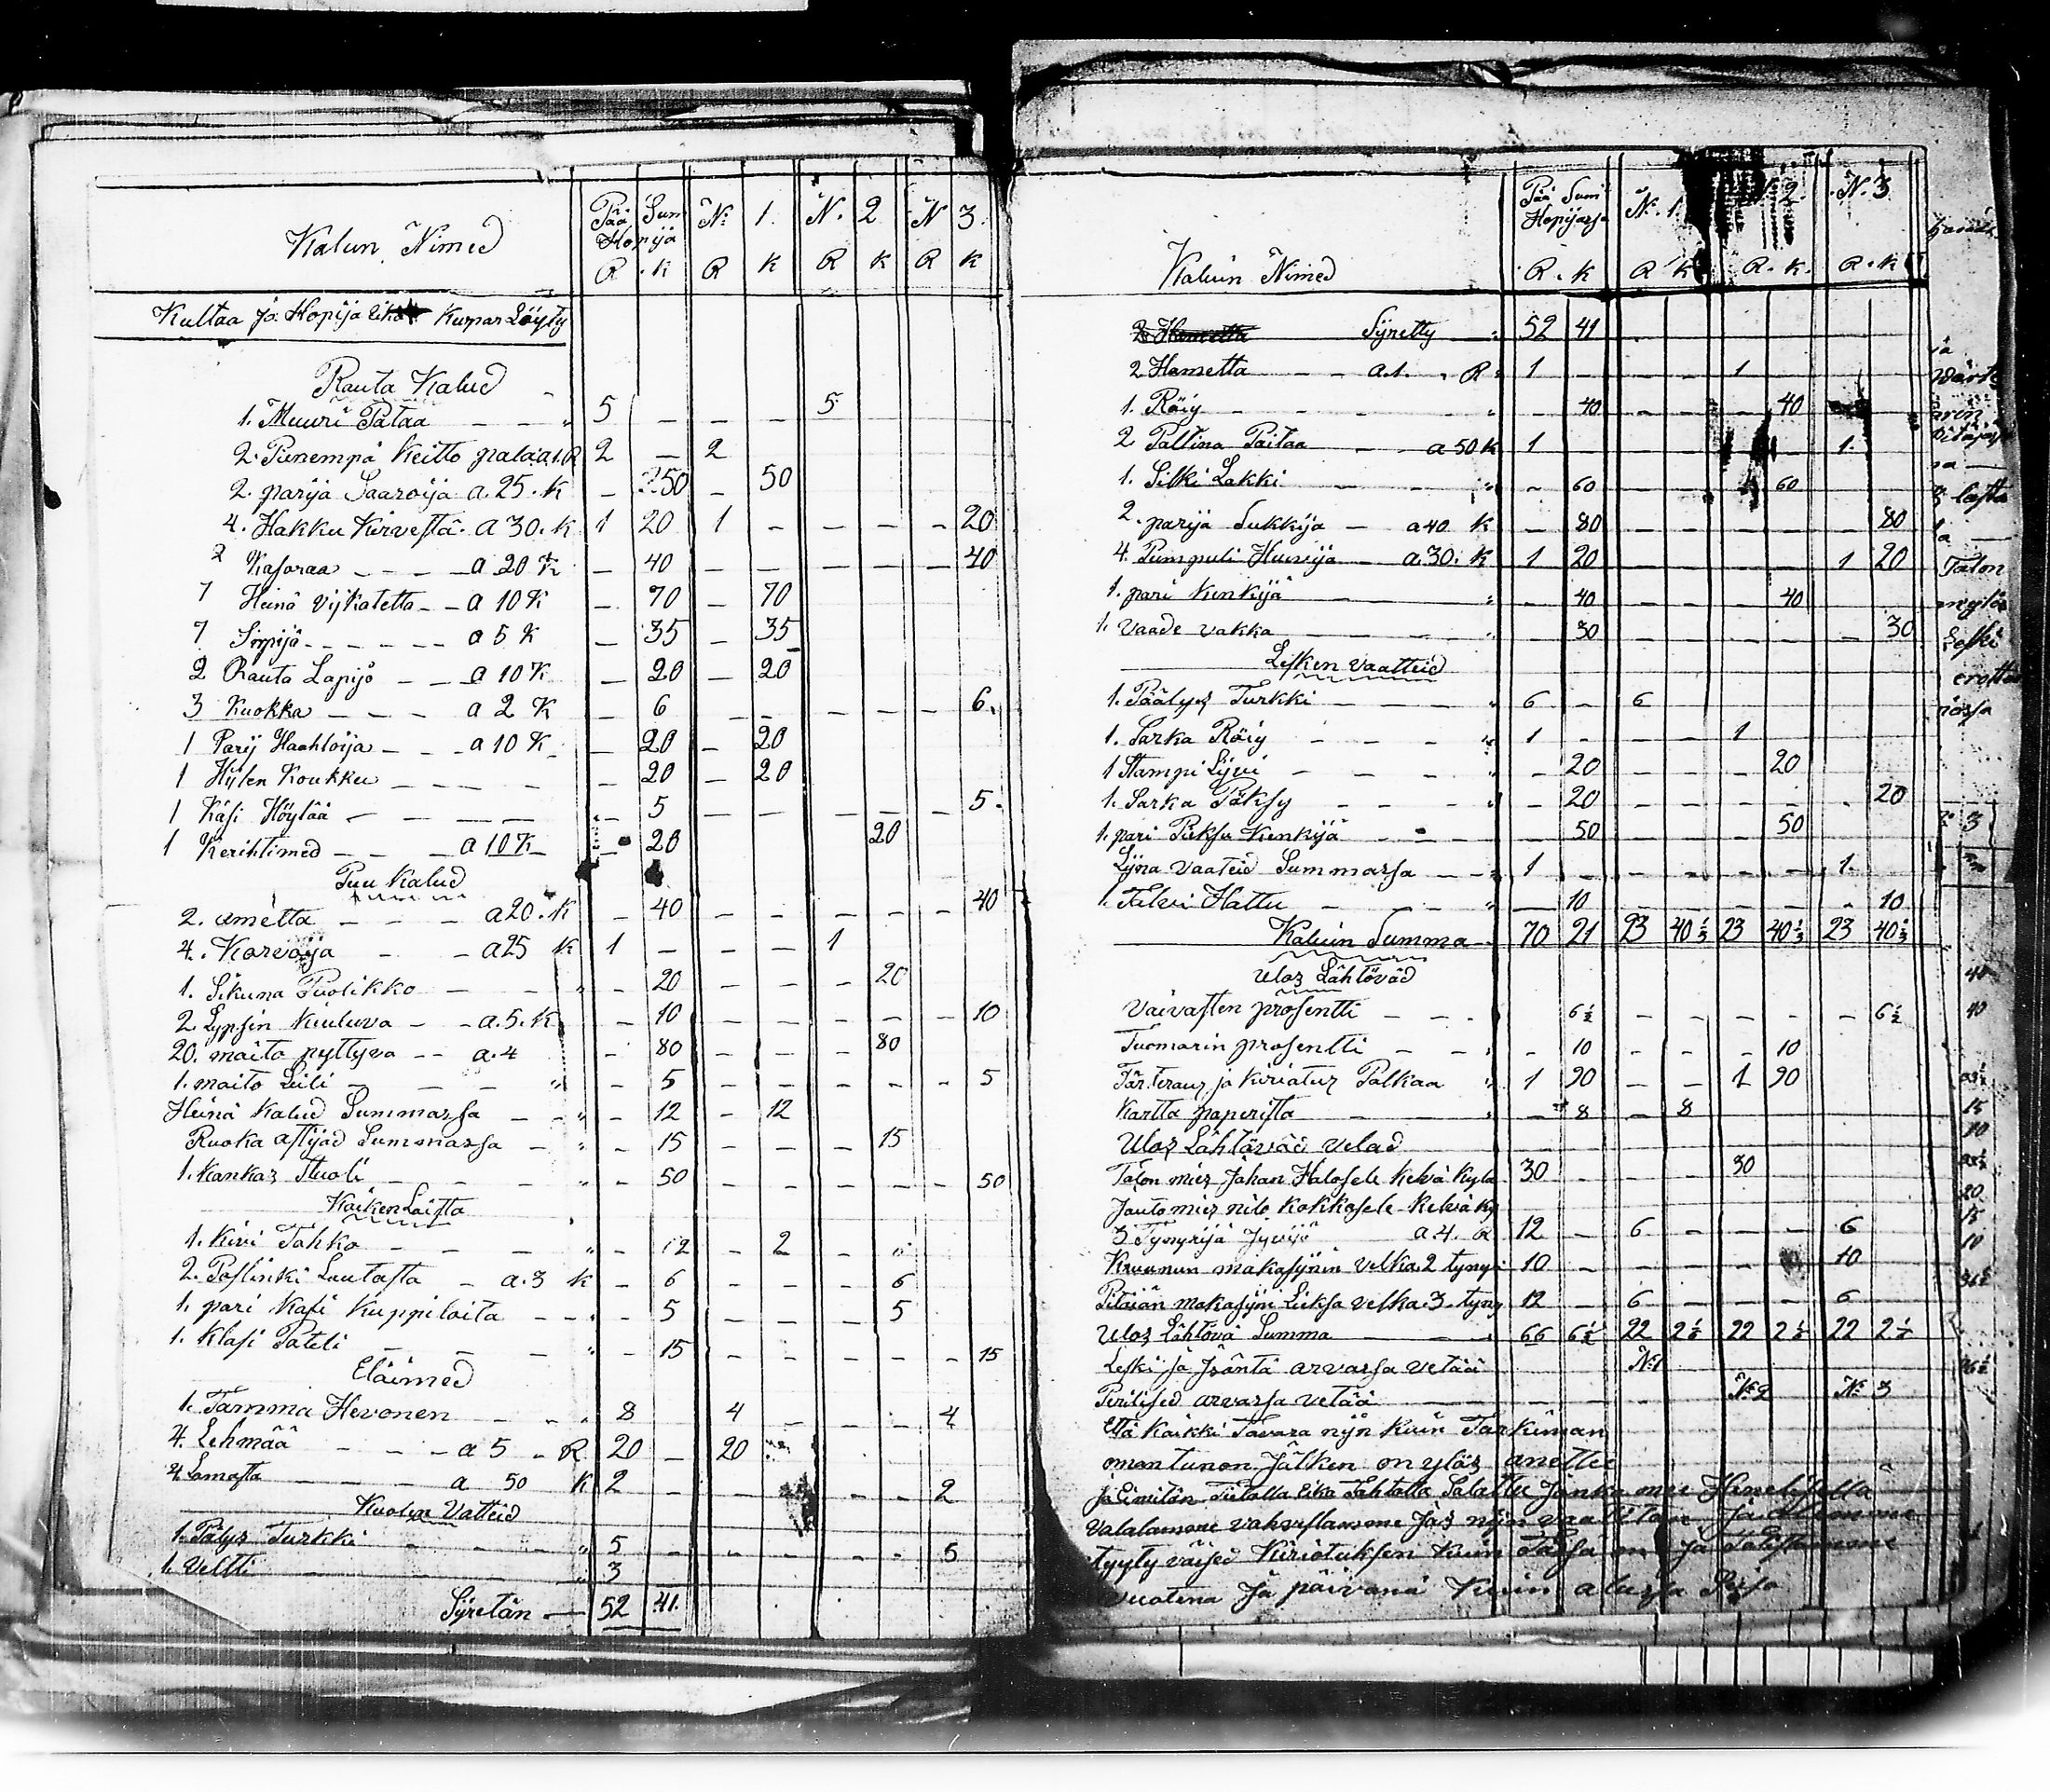 Kalun Nimed Pää Sum Hopija N: 1. N. 2 N 3.
R. K R K R K R K
Kultaa ja Hopija Eikä Kupar Löyty
Rauta Kalud
1. Muuri Pataa — — 5 — — — 5
2. Pienempä Keitto pataa a.1.R 2 — 2
2. parija Saaroija a. 25. K — 50 — 50
4. Hakku Kirvestä. a 30. K 1 20 1 — — — — 20
2 Kasaraa — — — a 20 K — 40 — — — — — 40
7 Heinä Vijkatetta — — a 10 K — 70 — 70
7 Sirpijä — — — a 5 K — 35 — 35
2 Rauta Lapijo — — a 10 K — 20 — 20
3 Kuokka — — — a 2 K — 6 — — — — — 6.
1 Parij Haahloija — — a 10 K — 20 — 20
1 Hijlen Koukku — — — — 20 — 20
1 Käsi Höylää — — — — 5 — — — — — 5.
1 Kerihtimed — — — a 10 K — 20 20
Puu Kalud
2. amétta — — — a 20. K — 40 — — — — — 40
4. Korvoija — — a 25 K 1 — — — 1
1. Sikuna Puolikko — — — 20 — — — 20
2. Lypsin Kiuluva — — a. 5. K — 10 — — — — — 10
20. maito pyttyva — — a. 4 — 80 — — — 80
1. maito Leili — — — — 5 — — — — — 5
Heinä Kalud Summassa — — — 12 — 12
Ruoka astijad Summassa — — 15 — — — 15
1. Kankas Stuoli — — — — 50 — — — — — 50
Kaiken Laista
1. Kivi Tahko — — — — 12 — 2 —
2. Poslinki Lautasta — a. 3 K — 6 — — — 6
1. pari Kafi Kuppiloita — — — 5 — — — 5
1. Klasi Pateli — — — 15 — — — — — 15
Eläimed
1. Tamma Hevonen — — 8 4 — — — 4
4. Lehmää — — — a 5 — R 20 — 20
4 Lamasta — — — a 50 K 2 — — — — — 2
Kuolen Vatteid
1. Pälys Turkki — — — — 5 — — — — — 5
1. Veltti — — — 3
Syretän — 52 41.
Kaluin Nimed Pää Sum Hopijassa N:. 1. 2. N. 3
R. K R K R. K. R. K
Syretty 52 41
2 Hametta — — a.1. R 1 — — — 1
1. Röiy — — — — 40 — — — 40
2 Paltina Paitaa — a 50 K 1 — — — — — 1.
1. Silki Lakki — — — — 60 — — — 60
2. parija Sukkija — a 40. K — 80 — — — — — 80
4. Pumpuli Huivija — a. 30. K 1 20 — — — — 1 20
1. pari Kenkijä — 40 — — — 40
1. Vaade vakka — — — — 30 — — — — — 30
Lesken vaatteid
1. Päälys Turkki — — — 6 — 6
1. Sarka Röiy — — — 1 — — — 1
1 Stampi Lijvi — — — — 20 — — — 20
1. Sarka Pöksy — — — — 20 — — — — — 20
1. pari Pieksu Kenkijä — — — 50 — — — 50
Lijna vaateid Summassa — — 1 — — — — — 1.
1. Talvi Hattu — — — — 10 — — — — — 10
Kaluin Summa — 70 21 23 40 1/3 23 40 1/3 23 40 1/3
Ulos Lähtöväd
Vaivasten prosentti — — — 6 1/2 — — — — — 6 1/2
Tuomarin prosentti — — — 10 — — — 10
ja Kiriatus Palkaa 1 90 — — 1 90
Kartta paperista — — — 8 — 8
Ulos Lähtöväd velad
Talon mies Johan Halosele Kelvä Kylä 30 — — — 30
Jauto mies nilo Kokkosele Kelvä Ky
3 Tynyrijä Jyvijä a 4. R 12 — 6 — — — 6
Kruunun makasynin velka 2 tynyr 10 — — — — — 10
Pitäjän makasyni Lieksa velka. 3. tyny 12 — 6 — — — 6
Ulos Lähtövä Summa — — 66 6 1/2 22 2 1/2 22 2 1/2 22 2 1/2
Leski ja Isäntä arvassa vetää N:1
Perilised arvassa vetää N:2 N: 3
Että Kaikki Tavara nijn Kuin Tarkiman
oman tunon Jälken on ylös anettu
ja Eimitän Tietalla Eikä Tahtatta Salattu Jonka me
valalamme vahvistamme Jos nijn vaaditan Ja Olemme
tyyty väised Kirioituksen Kuin Tässä on ja
vuotena Ja päivänä Kuin alussa